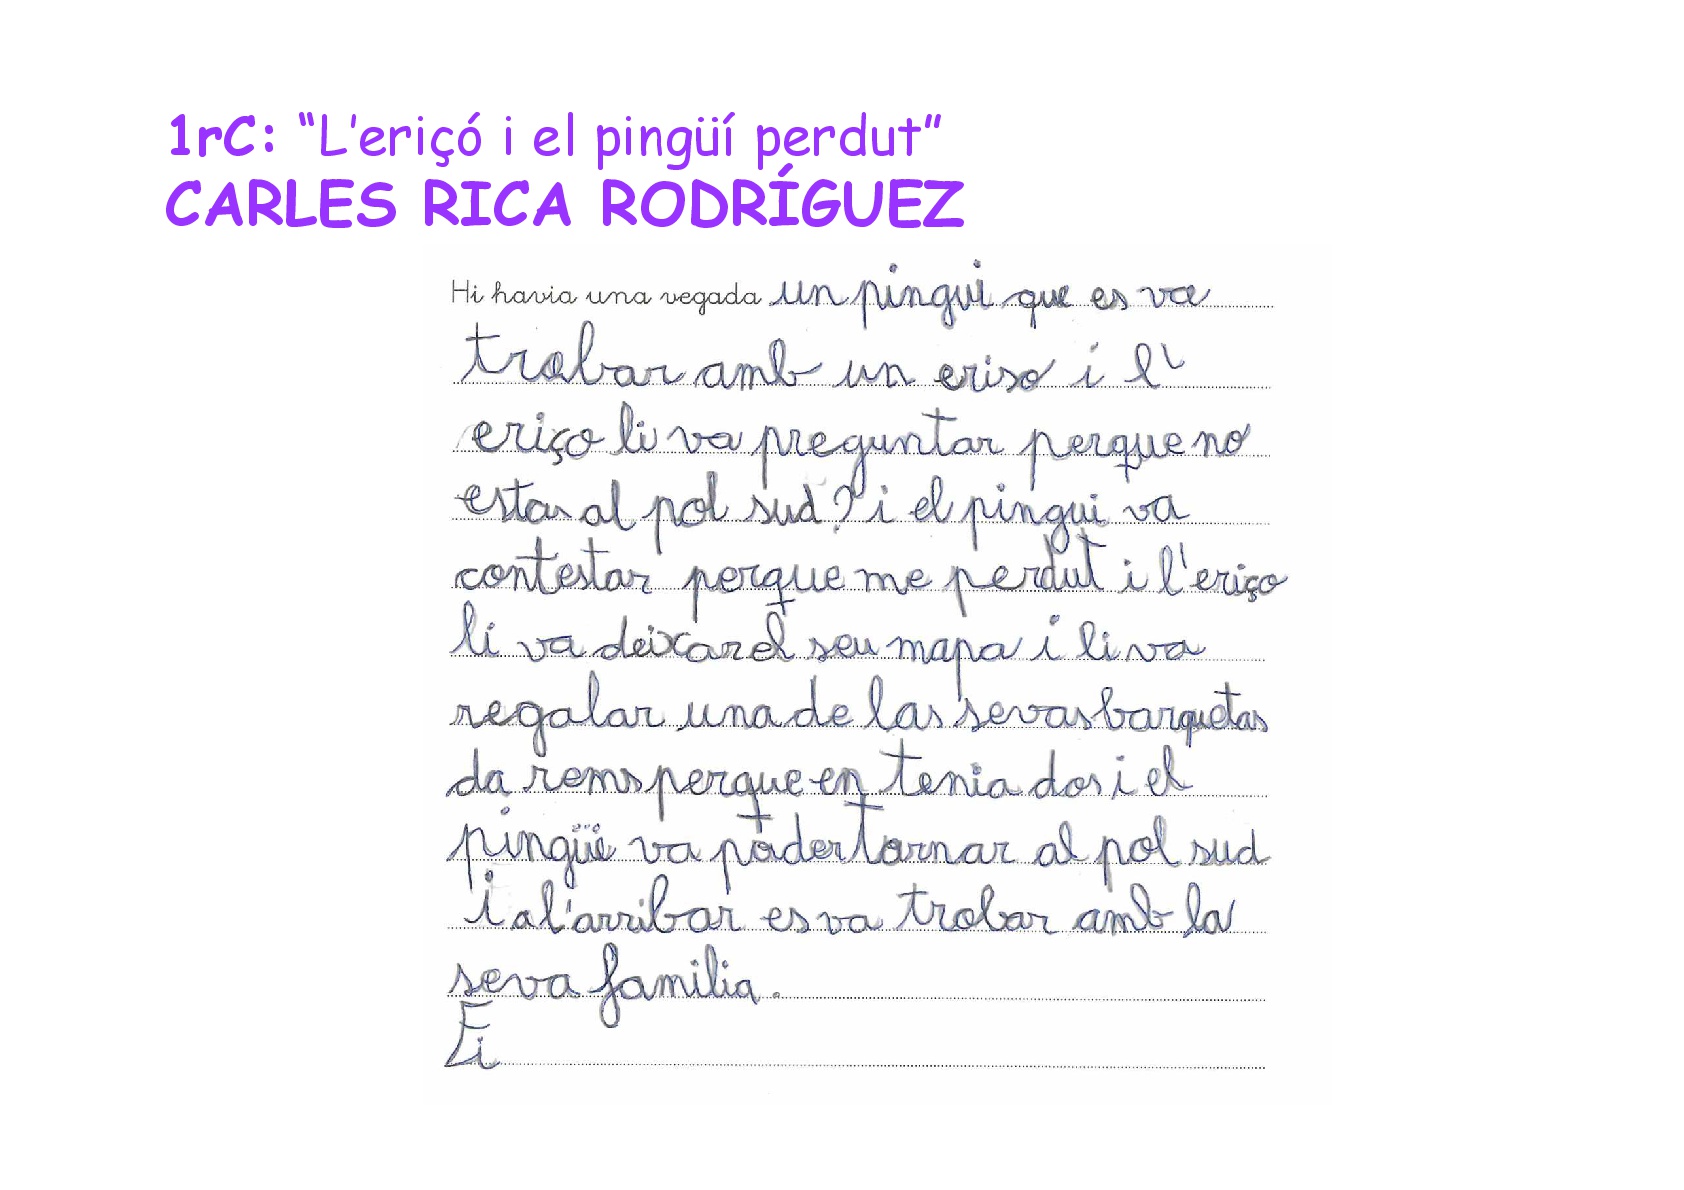 1rC: “L’eriçó i el pingüí perdut”
CARLES RICA RODRÍGUEZ
Hi havia una vegada un pingui que es va
trobar amb un eriso i l'
eriço li va preguntar perque no
estas al pol sud? i el pingui va
contestar perque me perdut i l'eriço
li va deixar el seu mapa i li va
regalar una de las sevas barquetas
da rems perque en tenia dos i el
pingüi va poder tornar al pol sud
i al'arribar es va trobar amb la
seva familia.
Fi